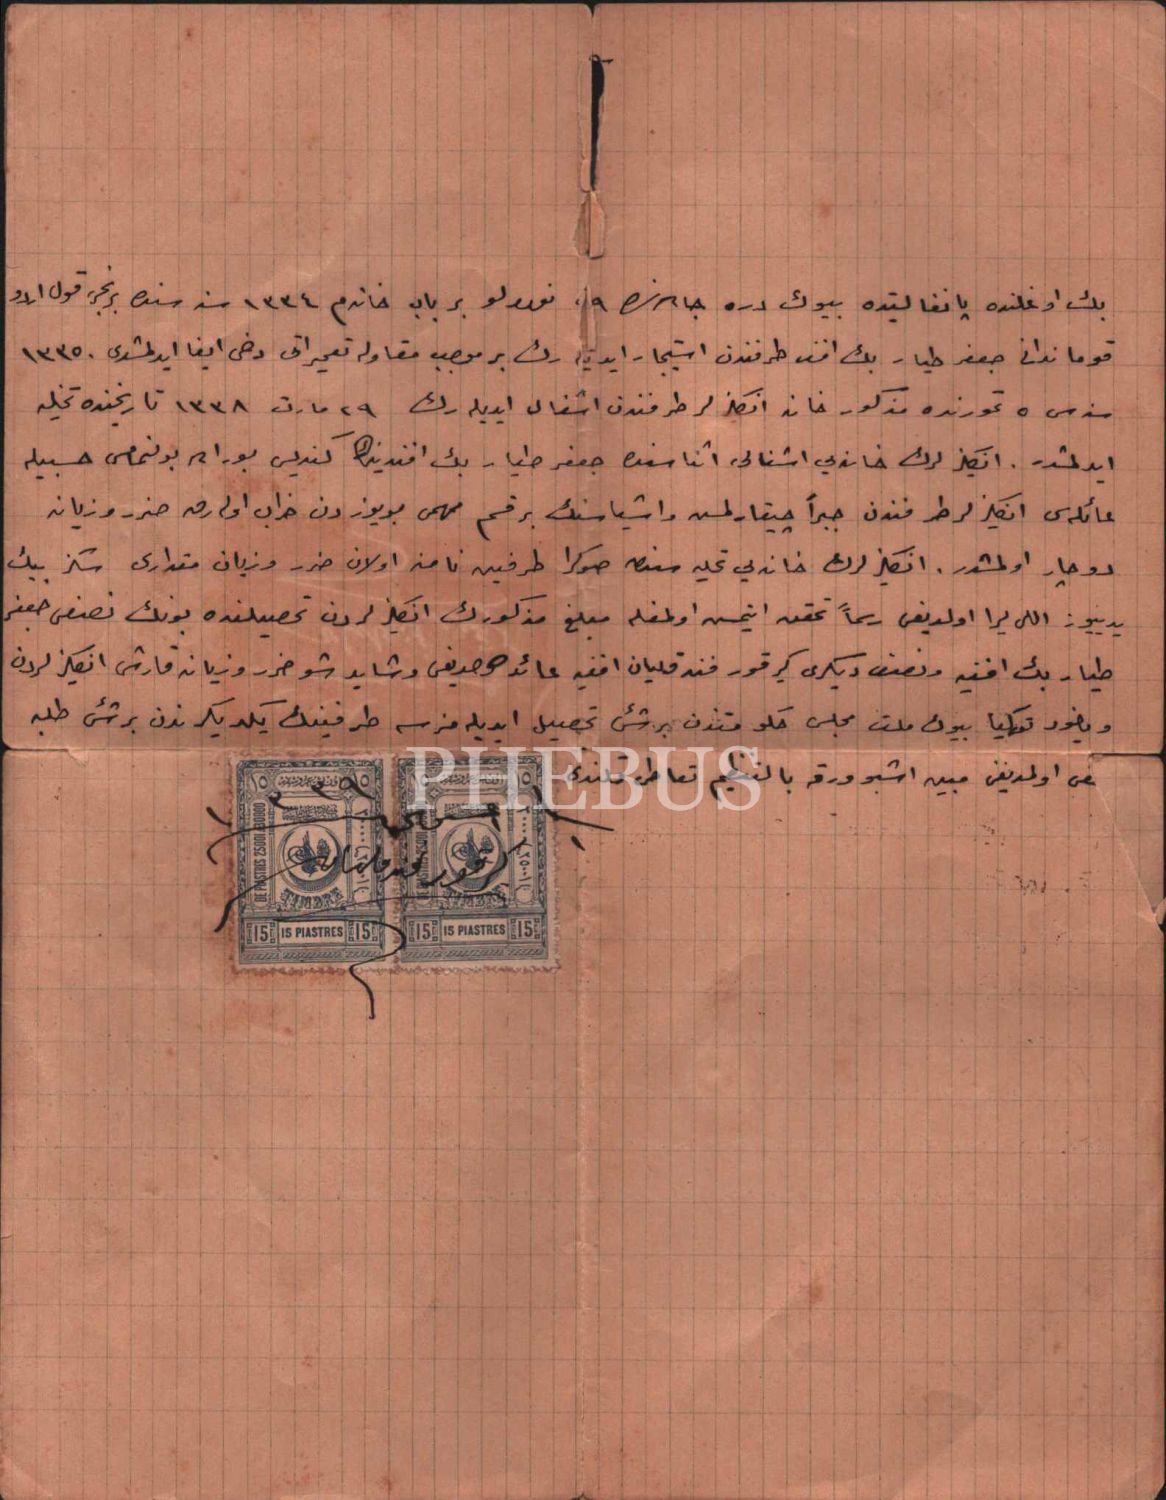 بك اوغلنده پانغالتیده بیوك دره جاده‌سنده ١٩ نومرولو بر باب خانه‌م ١٣٣٤ سنه‌سنده برنجی قول اردو
قوماندانی جعفر طیار بك افندی طرفندن استیجار ایدیله‌رك بر موجب مقاوله تعمیراتی دخی ایفا ایدلمشدی. ١٣٣٥
سنه‌سی ٥ تموزنده مذكور خانه انكلیزلر طرفندن اشغال ایدیله‌رك ٢٩ مارت ١٣٣٨ تاریخنده تخلیه
ایدلمشدر. انكلیزلرك خانه‌یی اشغالی اثناسنده جعفر طیار بك افندینك كندیسی بوراده بولنمامسی حسبیله
عائله‌سی انكلیزلر طرفندن جبراً چیقارلمش و اشیاسنك بر قسم مهمی بویوزدن خراب اوله‌رق ضرر و زیانه
دوچار اولمشدر. انكلیزلرك خانه‌یی تخلیه‌سندن صوكرا طرفین نامنه اولان ضرر و زیان مقداری سكز بیك
یدییوز اللی لیرا اولدیغی رسماً تحقق ایتمش اولمغله مبلغ مذكورك انكلیزلردن تحصیلنده بونك نصفی جعفر
طیار بك افندی‌یه و نصف دیكری كیرقور فندقلیان افندی‌یه عائد اوله‌جغی و شاید شو ضرر و زیانه قارشی انكلیزلردن
ویاخود توركیا بیوك ملت مجلسی حكومتندن بر شئ تحصیل ایدیله‌مزسه طرفینك یكدیكرندن بر شئ طلبه
حقی اولمدیغی مبین اشبو ورقه بالتنظیم تعاطی قلندی
PHEBUS
١٥ ١٥ ١٥ ١٥
١٣٣٩
كیرقور فندقلیان
TIMBRE TIMBRE
15 15 PIASTRES 15 15 15 PIASTRES 15